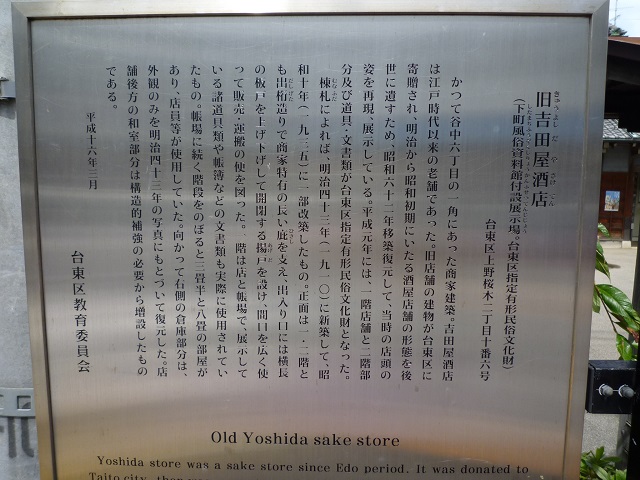 旧吉田屋酒店
きゅうよしだやさけてん
(下町風俗資料館付設展示場。台東区指定有形民俗文化財)
台東区上野桜木二丁目十番六号
かつて谷中六丁目の一角にあった商家建築。吉田屋酒店
は江戸時代以来の老舗であった。旧店舗の建物が台東区に
寄贈され、明治から昭和初期にいたる酒屋店舗の形態を後
世に遺すため、昭和六十二年移築復元して、当時の店頭の
姿を再現、展示している。平成元年には、一階店舗と二階部
分及び道具・文書類が台東区指定有形民俗文化財となった。
棟札によれば、明治四十三年(一九一〇)に新築して、昭
和十年(一九三五)に一部改築したもの。正面は一・二階と
も出桁造りで商家特有の長い庇を支え、出入り口には横長
の板戸を上げ下げして開閉する揚戸を設け、間口を広く使
って販売・運搬の便を図った。一階は店と帳場で、展示して
いる諸道具類や帳簿などの文書類も実際に使用されてい
たもの。帳場に続く階段をのぼると三畳半と八畳の部屋が
あり、店員等が使用していた。向かって右側の倉庫部分は、
外観のみを明治四十三年の写真にもとづいて復元した。店
舗後方の和室部分は構造的補強の必要から増設したもの
である。
平成十六年三月
台東区教育委員会
Old Yoshida sake store
Yoshida store was a sake store since Edo period. It was donated to
Taito city, then